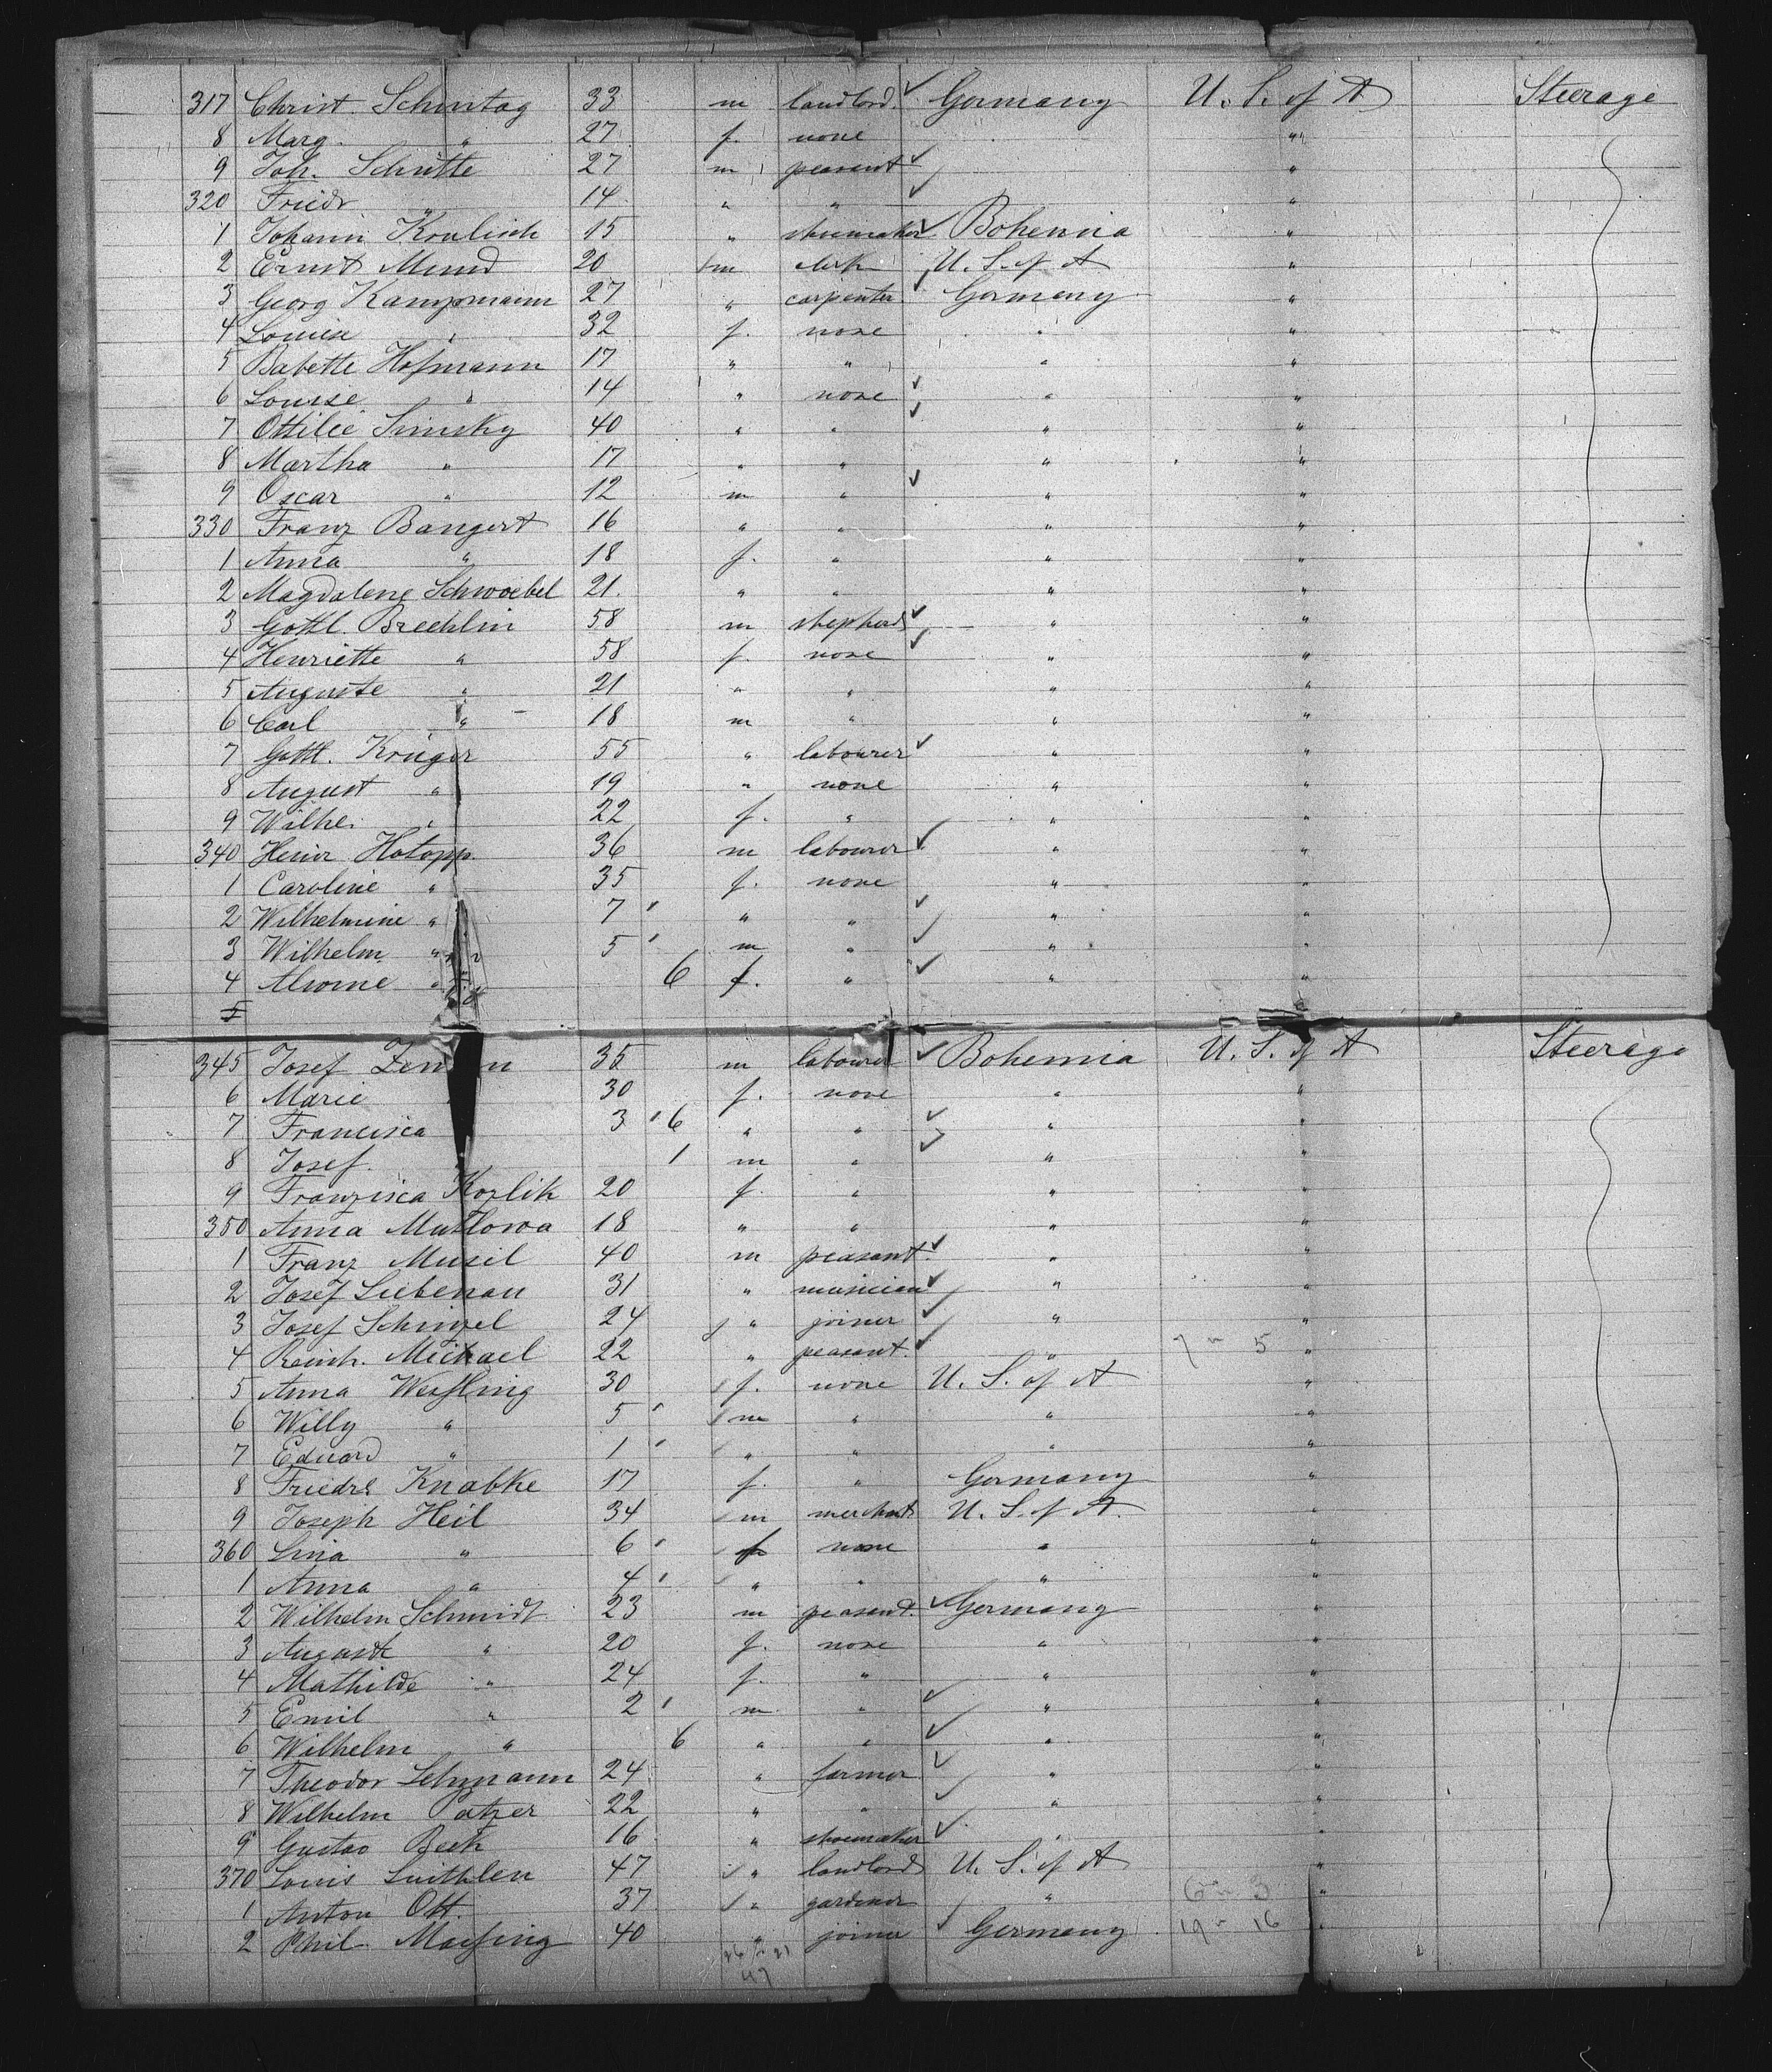 317 Christ. Schmtag 33 m landlord. Germany U. S. of A Steerage
8 Marg. " 27 f. none "
9 Joh. Schütte 27 m peasant "
320 Friedr " 14 " " "
1 Johann Kralisch 15 " shoemaker Bohemia "
2 Ernst Mund 20 m clerk U. S. of A "
3 Georg Kampmann 27 " carpenter Germany "
4 Louise " 32 f. none " "
5 Babette Hofmann 17 " " " "
6 Louise " 14 " none " "
7 Ottilie Simsky 40 " " " "
8 Martha " 17 " " " "
9 Oscar " 12 m " " "
330 Franz Bangert 16 " " " "
1 Anna " 18 f. " " "
2 Magdalene Schwoebel 21. " " " "
3 Gottl. Brechlin 58 m shepherd " "
4 Henriette " 58 f. none " "
5 Auguste " 21 " " " "
6 Carl " 18 m " " "
7 Gottl. Krüger 55 " labourer " "
8 August " 19 " none " "
9 Wilhe. " 22 f. " " "
340 Heinr Hotopp. 36 m labourer " "
1 Caroline " 35 f. none " "
2 Wilhelmine " 7 " " " "
3 Wilhelm " 5 m " " "
4 Alwine " 6 f. " " "
5
345 Josef 35 m labourer Bohemia U. S. of A Steerage
6 Marie 30 f. none " "
7 Francisca 3 6 " " " "
8 Josef. 1 m " " "
9 Franzisca Kozlik 20 f. " " "
350 Anna Mutlowa 18 " " " "
1 Franz Musil 40 m peasant. " "
2 Josef Liebenau 31 " musician " "
3 Josef Schinzel 24 " joiner " "
4 Reinh. Michael 22 " peasant. " 7 m 5 "
5 Anna Weissling 30 f. none U. S. of A "
6 Willy " 5 m " " "
7 Eduard " 1 " " " "
8 Friedrs Knabke 17 f. " Germany "
9 Joseph Heil 34 m merchant U. S. of A. "
360 Lina " 6 f none " "
1 Anna " 4 " " " "
2 Wilhelm Schmidt 23 m peasant. Germany "
3 Auguste " 20 f. none " "
4 Mathilde " 24 f. " " "
5 Emil " 2 m " " "
6 Wilhelm " 6 " " " "
7 Theodor Lehmann 24 " farmer " "
8 Wilhelm Patzer 22 " " " "
9 Gustav Beck 16 " shoemaker " "
370 Louis Luithlen 47 " landlord U. S. of A "
1 Anton Ott. 37 " gardener " 6 m 3 "
2 Phil. Massing 40 " joiner Germany 19 m 16 "
26 21
47